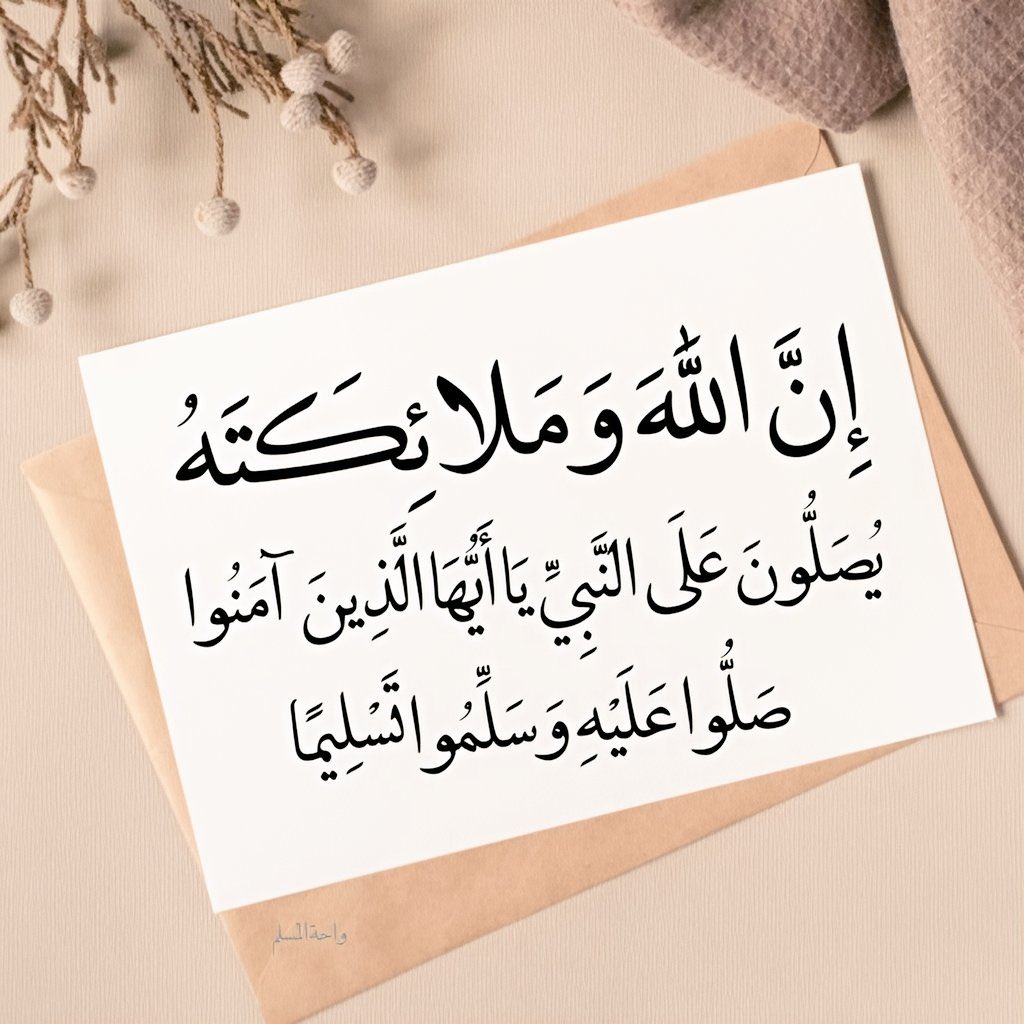 إِنَّ اللَّهَ وَمَلائِكَتَهُ
يُصَلُّونَ عَلَى النَّبِيِّ يَا أَيُّهَا الَّذِينَ آمَنُوا
صَلُّوا عَلَيْهِ وَسَلِّمُوا تَسْلِيمًا
واحة المسلم